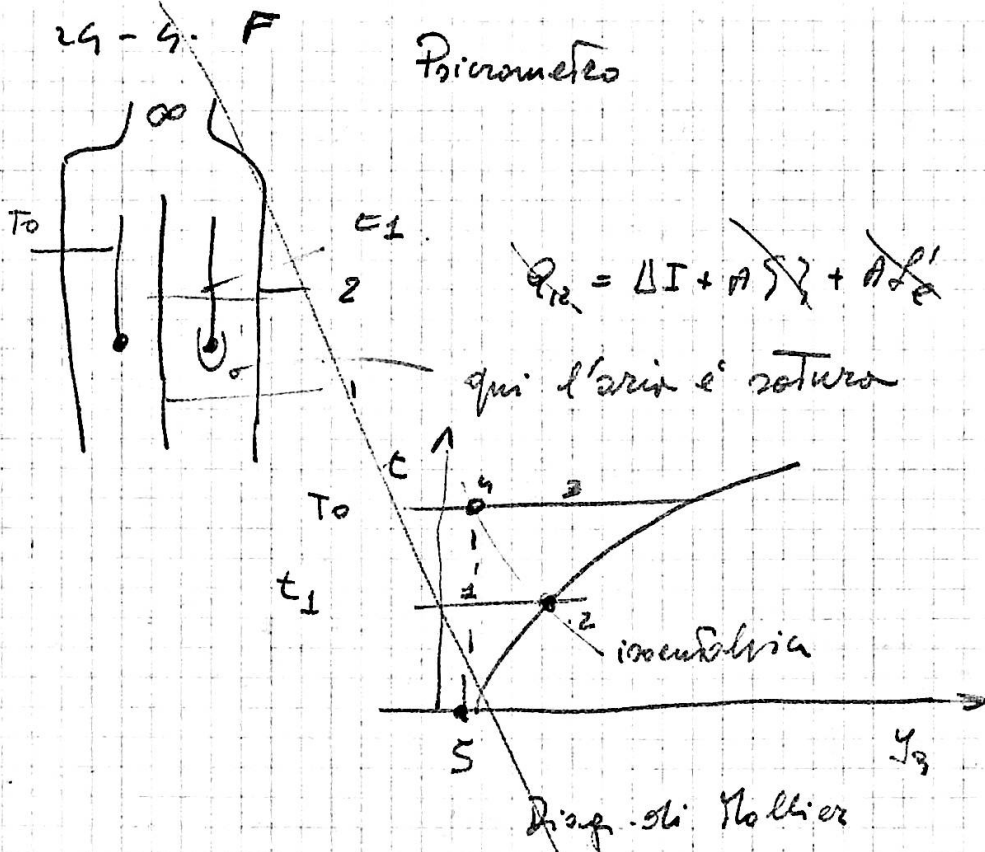 24 - 4. F
Psicrometro
∞
To
t1
2
Q12 = ΔI + A + A
1
qui l'aria e' satura
t
To
4
3
t1
1
2
isoentalpica
5
Diag. di Mollier